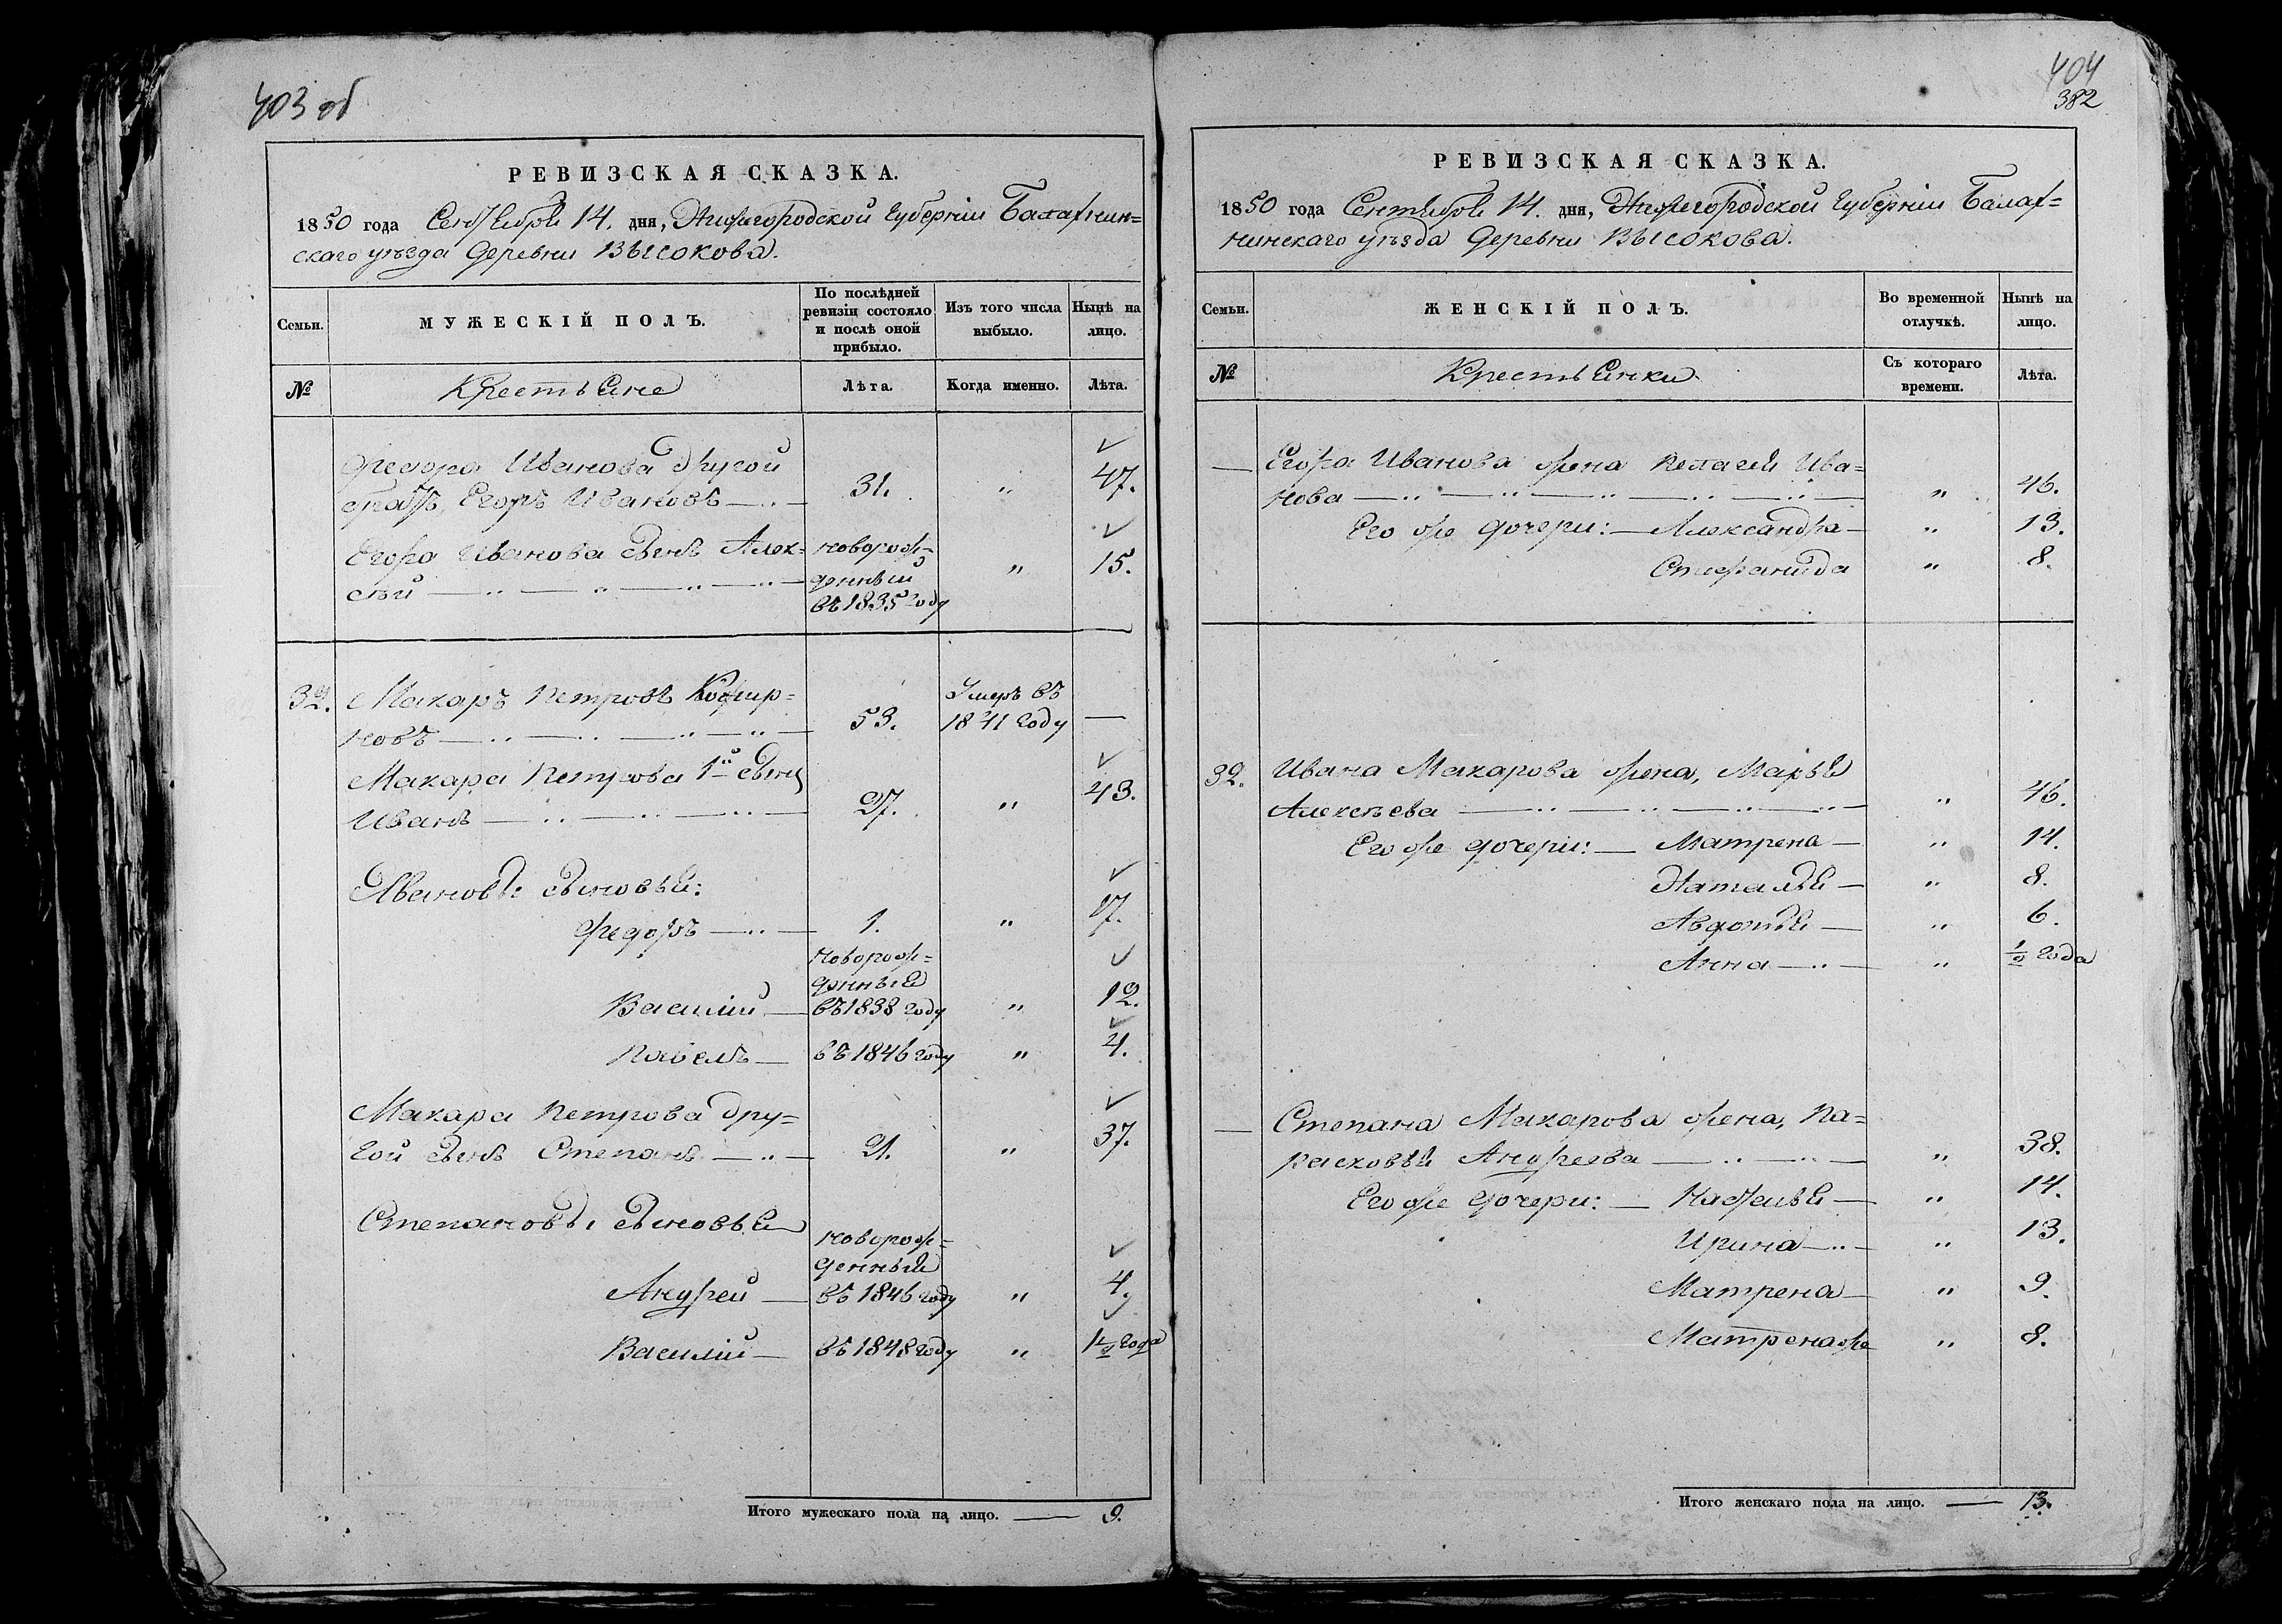 403 об
РЕВИЗСКАЯ СКАЗКА.
1850 года Сентября 14. дня, Нижегородской Губерніи Балахнин=
скаго уѣзда Деревни Высокова.
Семьи.
МУЖЕСКІЙ ПОЛЪ.
По послѣдней ревизіи состояло и послѣ оной прибыло.
Изъ того числа выбыло.
Нынѣ на лицо.
№
Крестьяне
Лѣта.
Когда именно.
Лѣта.
Федора Иванова другой
братъ, Егоръ Ивановъ — 31. " 47.
Егора Иванова сынъ Алек=
сѣй — новорож=
денный
въ 1835 году " 15.
32. Макаръ Петровъ
новъ — 53. Умеръ въ
1841 году —
Макара Петрова 1й сынъ
Иванъ — 27. " 43.
Ивановы сыновья:
Федоръ — 1. " 17.
Василій — новорож=
денный
въ 1838 году " 12.
Павелъ — въ 1846 году " 4.
Макара Петрова дру=
гой сынъ Степанъ — 21. " 37.
Степановы сыновья
Андрей — новорож=
денный
въ 1846 году " 4.
Василій — въ 1848 году " 1½ года
Итого мужескаго пола на лицо. — 9.
404
382
РЕВИЗСКАЯ СКАЗКА.
1850 года Сентября 14. дня, Нижегородской Губерніи Балах=
нинскаго уѣзда Деревни Высокова.
Семьи.
ЖЕНСКІЙ ПОЛЪ.
Во временной отлучкѣ.
Нынѣ на лицо.
№
Крестьянки
Съ котораго времени.
Лѣта.
— Егора Иванова жена Пелагея Ива=
нова — " 46.
Его же дочери: — Александра — " 13.
Стефанида " 8.
32. Ивана Макарова жена, Марья
Алексѣева — " 46.
Его же дочери: — Матрена — " 14.
Наталья — " 8.
Авдотья — " 6.
Анна — " ½ года
— Степана Макарова жена, Па=
расковья Андреева — " 38.
Его же дочери: — Настасья — " 14.
Ирина — " 13.
Матрена — " 9.
Матрена же " 8.
Итого женскаго пола на лицо. — 13.